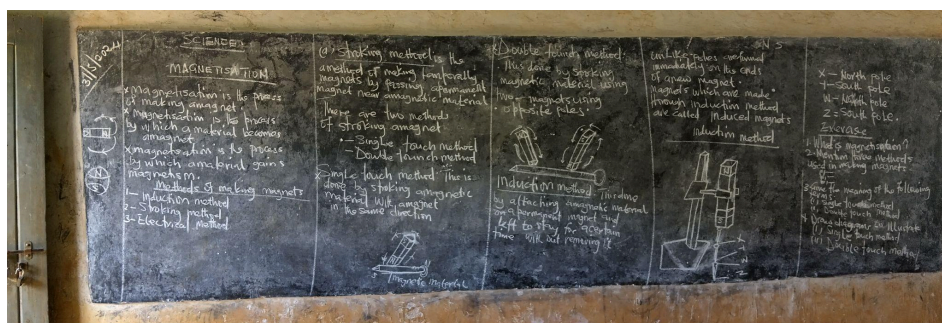 31/5/2024
SCIENCE
MAGNETISATION
x Magnetisation is the process
of making a magnet.
x Magnetisation is the process
by which a material becomes
a magnet.
x magnetisation is the process
by which a material gain's
magnetism.
Methods of making magnets
1- Induction method
2- Stroking method
3- Electrical method
(a) Stroking method: is the
a method of making temporally
magnets by passing a permanent
magnet near a magnetic material
There are two methods
of stroking a magnet
- Single touch method
- Double touch method
x Single touch method This is
done by stoking a magnetic
material with a magnet
in the same direction
magnetic material
x Double touch method:
This done by stroking
magnetic material using
two magnets using
opposite poles.
Induction method This done
by attaching a magnetic material
on a permanent magnet and
left to stay for a certain
time without removing it
N S
unlike poles are formed
immediately on the ends
of a new magnet
magnets which are made
through induction method
are called Induced magnets
Induction method
X - North pole
Y - South pole
W - North pole
Z = South pole.
Exercise
1. What is magnetisation?
2. Mention three methods
used in making magnets
3. Give the meaning of the following
Single touch method
Double touch method
4. Draw diagrams to illustrate
(i) Single touch method
(ii) Double touch method